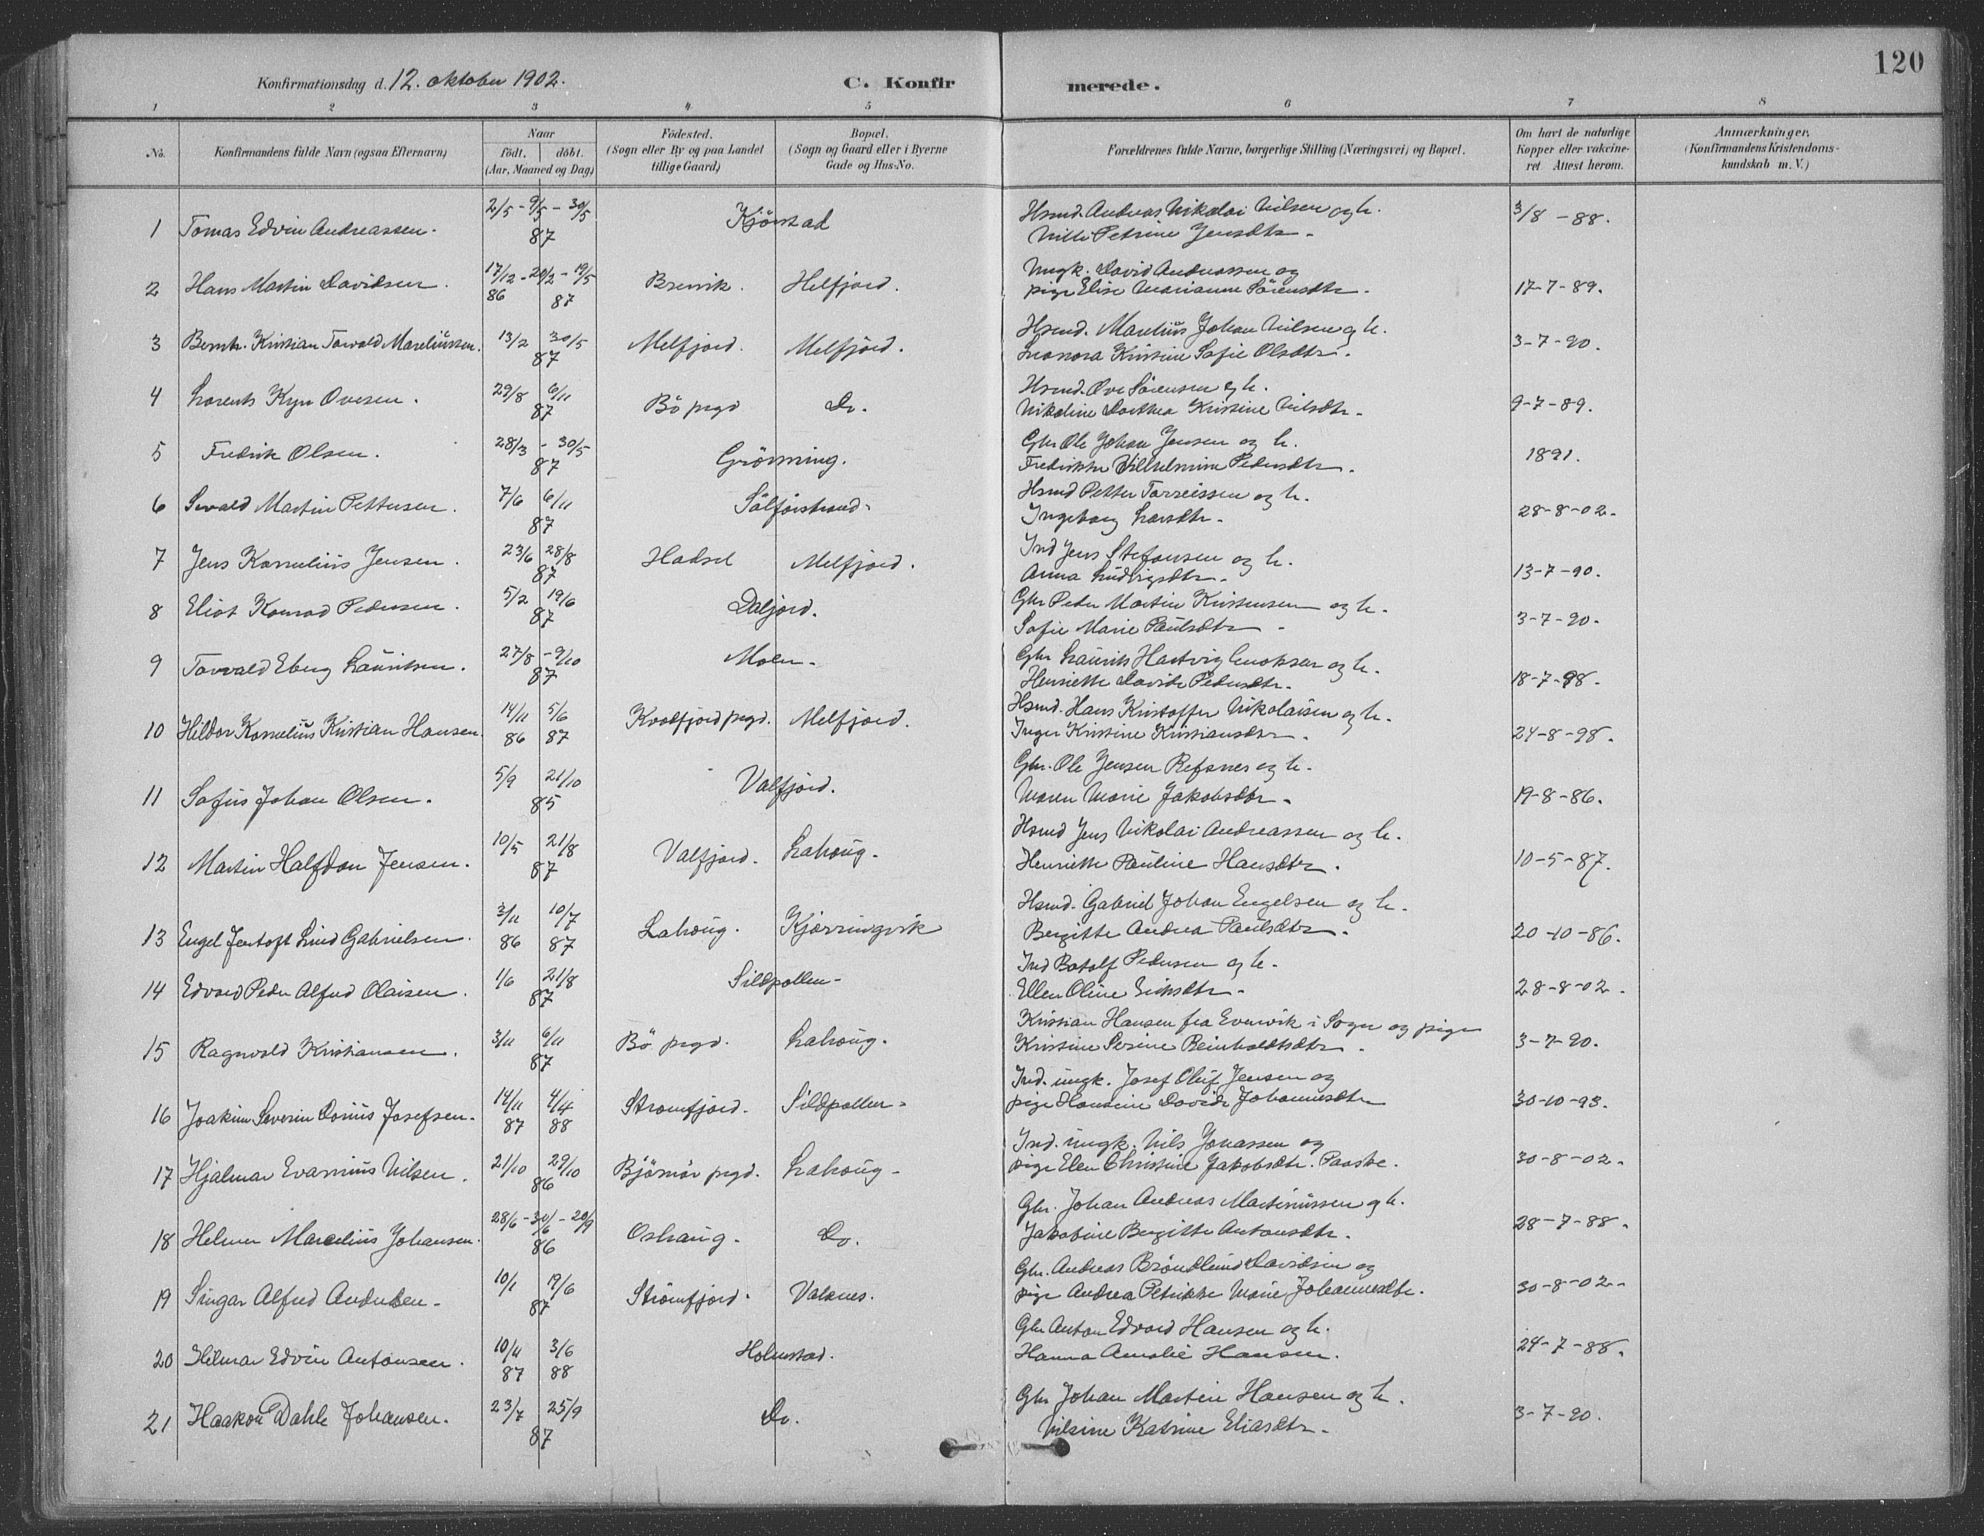 120
Konfirmationsdag d. 12. oktober 1902.
C. Konfirmerede.
1 2 3 4 5 6 7 8
No. Konfirmandens fulde Navn (ogsaa Efternavn) Naar født. døbt. (Aar, Maaned og Dag) Fødested. (Sogn eller By og paa Landet tillige Gaard) Bopæl. (Sogn og Gaard eller i Byerne Gade og Hus-No. Forældrenes fulde Navne, borgerlige Stilling (Næringsvei) og Bopæl. Om havt de naturlige Kopper eller vakcineret Attest herom. Anmærkninger. (Konfirmandens Kristendomskundskab m. V.)
1 Tomas Edvin Andreassen. 2/5 - 9/5 - 30/5 87 Kjørstad Hsmd. Andreas Nikolai Nilsen og h. Petrine Jensdtr. 3/8 - 88.
2 Hans Martin Davidsen. 17/12 86 - 20/2 - 19/5 87 Brenvik. Melfjord. Ungk. David Andreassen og pige Elise Marianne Sörensdtr. 17-7-89.
3 Bernh. Kristian Torvald Mareliussen. 13/2 30/5 87 Melfjord. Melfjord. Hsmd. Marelius Johan Nilsen og h. Leonora Kristine Sofie Olsdtr. 3-7-90.
4 Lorents Kyn Ovesen. 29/8 6/11 87 Bö pregd Do. Hsmd. Ove Sörensen og h. Nikoline Dorthea Kristine Nilsdtr. 9-7-89.
5 Fredrik Olsen. 28/3 - 30/5 87 Grönning. Gbr. Ole Johan Jensen og h. Fredrikke Vilhelmine Pedersdtr. 1891.
6 Sevald Martin Pettersen. 7/6 6/11 87 Hsmd Petter Torreissen og h. Ingeborg Larsdtr. 28-8-02.
7 Jens Kornelius Jensen. 23/6 28/8 87 Hadsel Melfjord. Ind Jens Stefansen og h. Anna Ludvigsdtr. 13-7-90.
8 Eliot Konrad Pedersen. 5/2 19/6 87 Daljord. Gbr Peder Martin Kristensen og h. Sofie Marie Paulsdtr. 3-7-90.
9 Torvald Eberg Lauritsen. 27/8 - 9/10 87 Molen. Gbr Laurits Hartvig Enoksen og h. Henriette Davida Pedersdtr. 18-7-98.
10 Hildor Kornelius Kristian Hansen. 14/11 86 5/6 87 Kvædfjord pregd. Melfjord. Hsmd. Hans Kristoffer Nikolaisen og h. Inger Kristine Kristiansdtr. 24-8-98.
11 Sofus Johan Olsen. 5/9 21/10 85 Valfjord. Gbr. Ole Jensen Refsnes og h. Maren Marie Jakobsdtr. 19-8-86.
12 Martin Halfdan Jensen. 10/5 21/8 87 Valfjord. Lahaug. Hsmd Jens Nikolai Andreassen og h. Henriette Pauline Hansdtr. 10-5-87.
13 Engel Jentoft Lind Gabrielsen. 3/11 86 10/7 87 Lahaug. Kjærringvik Hsmd. Gabriel Johan Engelsen og h. Bergitte Andrea Paulsdtr. 20-10-86.
14 Edvard Peder Alfred Olaisen. 1/6 21/8 87 Sildpollen. Ind Botolf Pedersen og h. Ellen Oline Eriksdtr. 28-8-02.
15 Ragnvald Kristiansen. 3/11 6/11 87 Bö pregd. Lahaug. Kristian Hansen fra Evenvik i Sogn og pige Kristine Serine Reinholdtsdtr. 3-7-90.
16 Joakim Severin Dorius Josefsen. 14/11 87 4/4 88 Strømfjord. Sildpollen. Ind. ungk. Josef Oluf Jensen og pige Hansine Davida Johannesdtr 30-10-93.
17 Hjalmar Evarnius Nilsen. 21/10 29/10 86 Bjørnør pregd. Lahaug. Ind. ungk. Nils Jonassen og pige Elen Christine Jakobsdtr. Paaske. 30-8-02.
18 Helmer Marcelius Johansen. 28/6 - 30/6 - 20/9 86 Oshaug. Do. Gbr. Johan Andreas Martinussen og h. Jakobine Bergitte Antonsdtr. 28-7-88.
19 Singar Alfred Andersen. 10/1 19/6 87 Strömfjord. Valsnes. Gbr. Andreas Bröndlund Davidsen og pige Andrea Petrikke Marie Johannesdtr. 30-8-02.
20 Hilmar Edvin Antonsen. 10/11 87 3/6 88 Holmstad. Gbr Anton Edvard Hansen og h. Hanna Amalie Hansen. 24-7-88.
21 Haakon Dahle Johansen. 23/7 25/9 87 Do. Gbr Johan Martin Hansen og h. Nilsine Katrine Eliasdtr. 3-7-90.